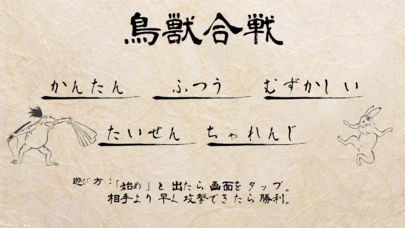 鳥獣合戦
かんたん ふつう むずかしい
たいせん ちゃれんじ
遊び方：「始め」と出たら画面をタップ。
相手より早く攻撃できたら勝利。